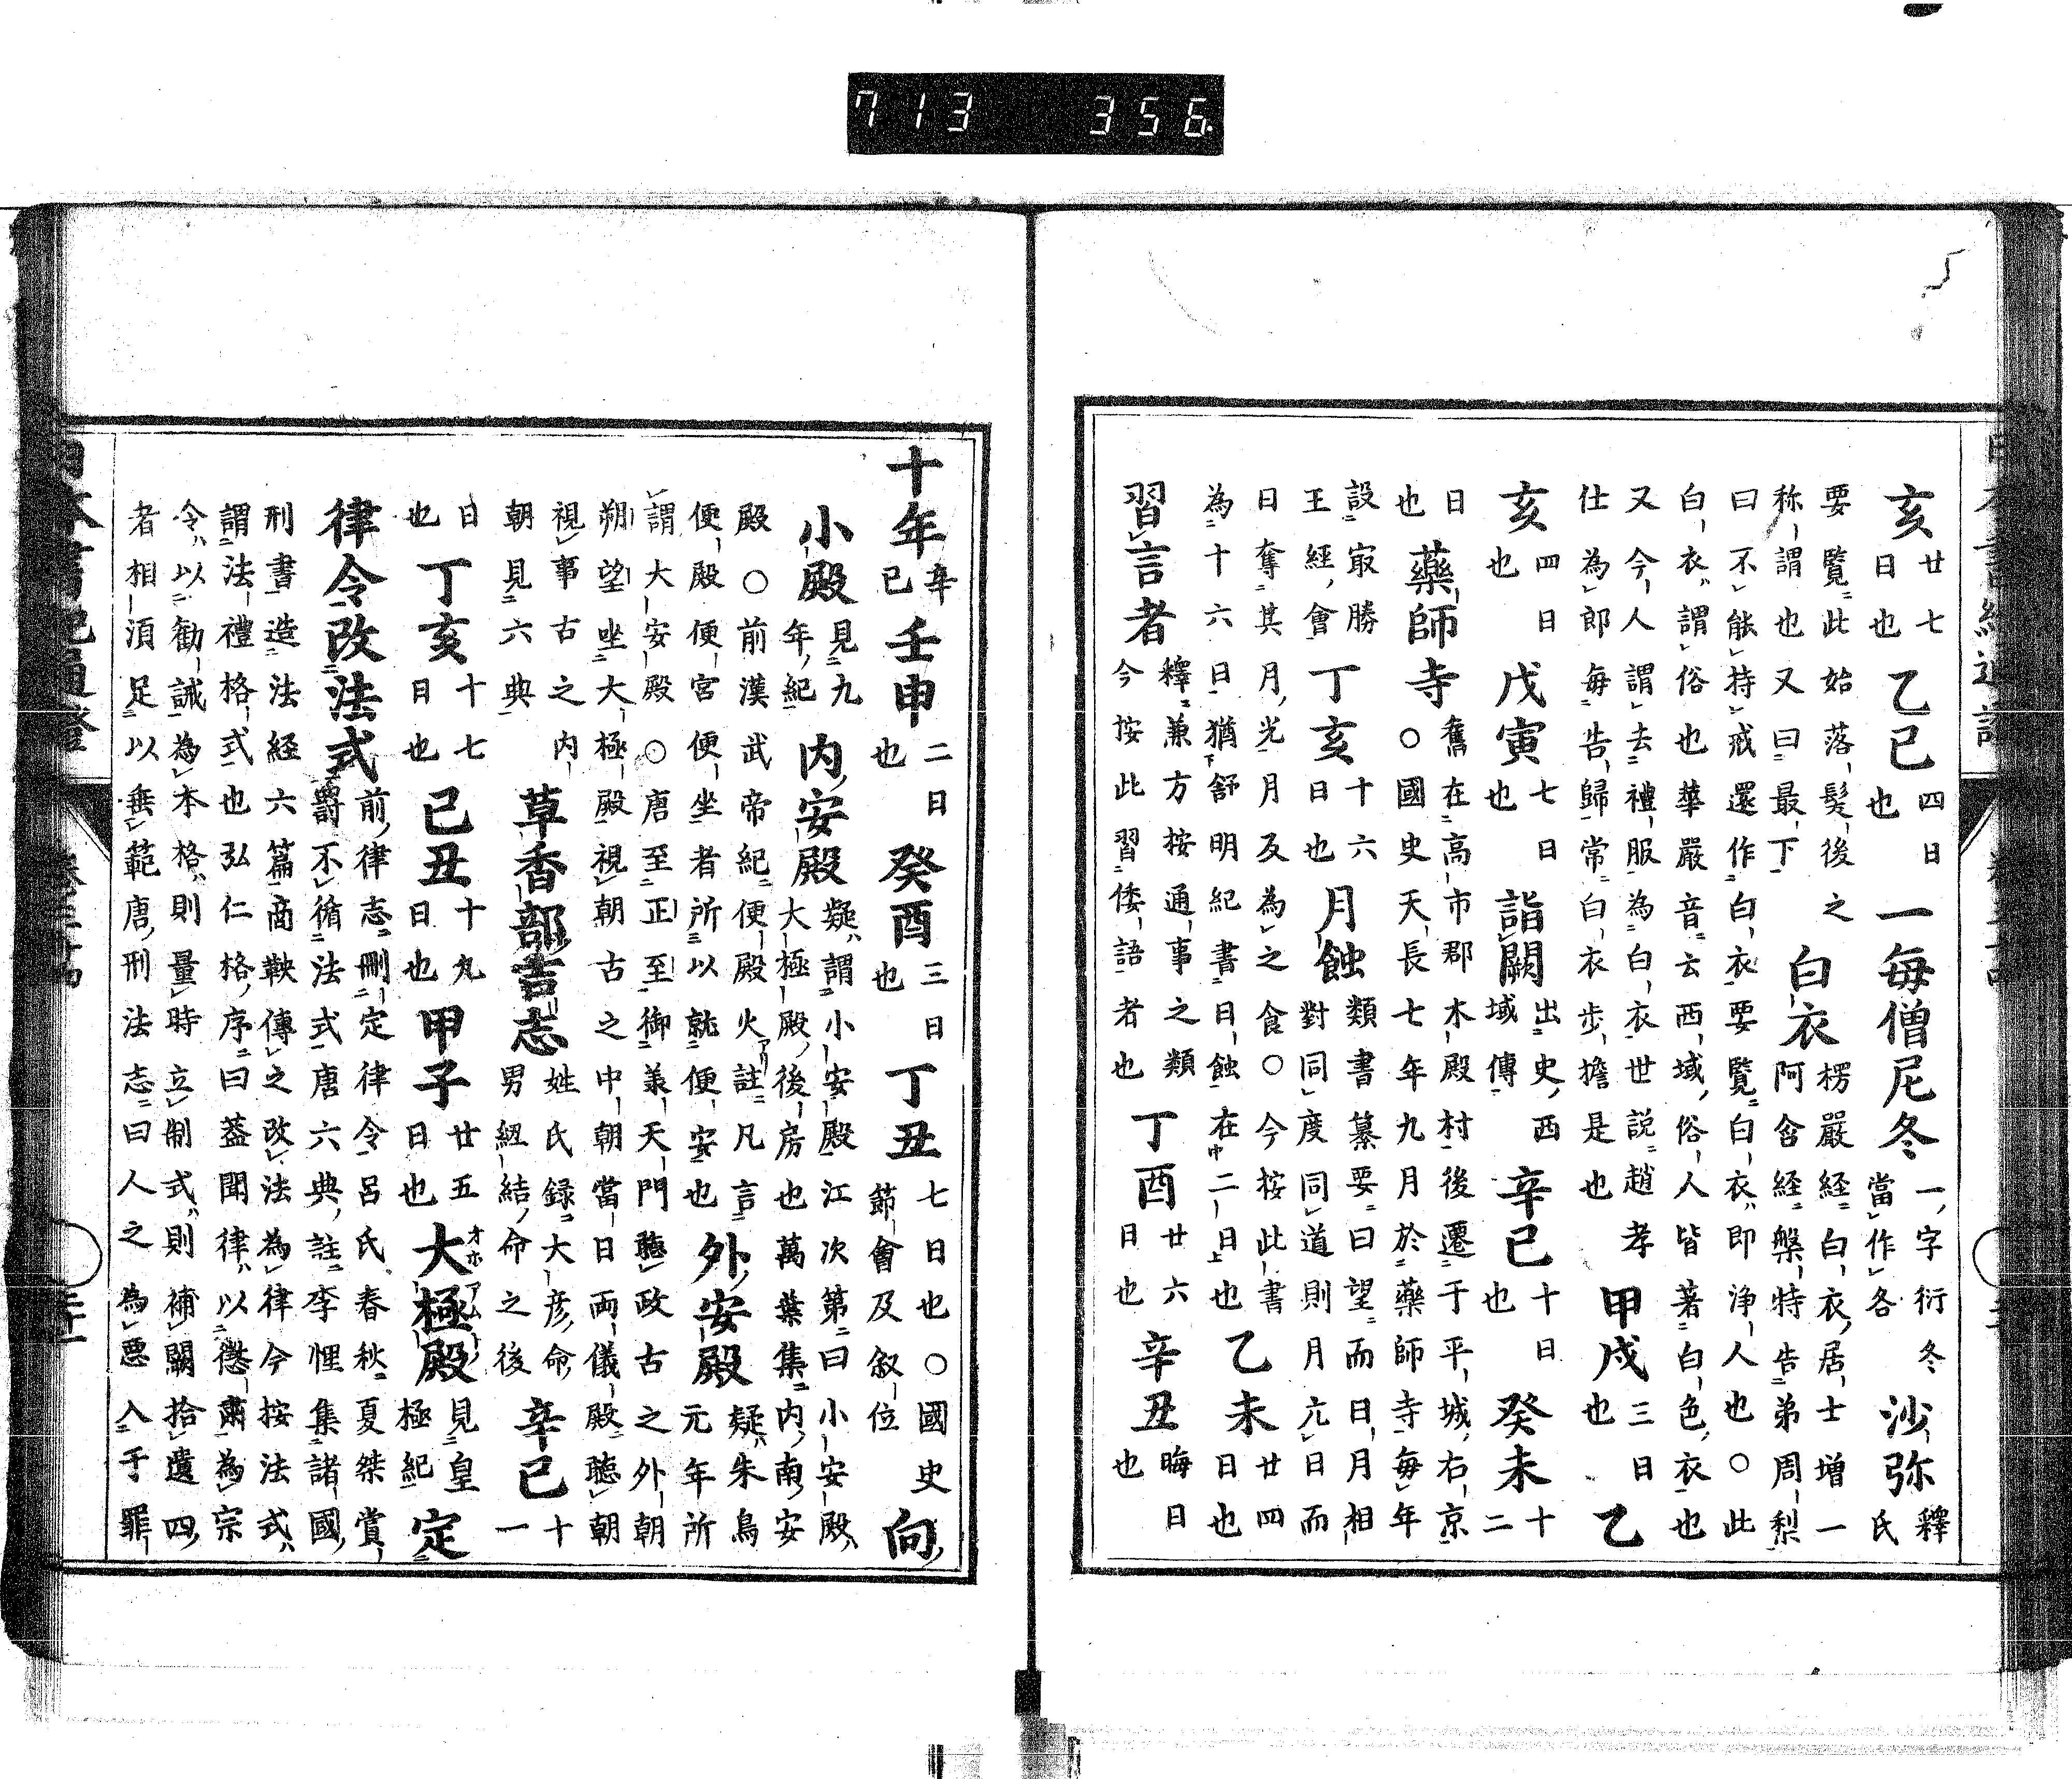 713 356
亥廿七日也乙巳四日也一毎僧尼冬一字衍冬當作各沙弥釋氏
要覽此始落髮後之称謂也又曰最下白衣楞嚴經白衣居士增一阿含経槃特告弟周梨
曰不能持戒還作白衣要覽白衣即浄人也○此
白衣謂俗也華嚴音云西域俗人皆著白色衣也
又今人謂去禮服為白衣世説趙孝仕為郎毎告歸常白衣步擔是也甲戌三日也乙
亥四日也戊寅七日也詣闕出史西域傳辛巳十日也癸未十二
日也藥師寺舊在高市郡木殿村後遷于平城右京○國史天長七年九月於藥師寺毎年
設㝡勝王經會丁亥十六日也月蝕類書纂要曰望而日月相對同度同道則月亢日而
日奪其月光月反為之食○今按此書為十六日猶舒明紀書日蝕在二日也乙未廿四日也
習言者釋兼方按通事之類今按此習倭語者也丁酉廿六日也辛丑晦日也
十年辛巳壬申二日也癸酉三日也丁丑七日也○國史節會及叙位向
小殿見九年紀内安殿疑謂小安殿江次第曰小安殿大極殿後房也萬葉集内南安
殿○前漢武帝紀便殿火註凡言便殿便宮便坐者所以就便安也外安殿疑朱鳥元年所
謂大安殿○唐至正至御羕天門聴政古之外朝
朔望坐大極殿視朝古之中朝當日両儀殿聴朝
視事古之内朝見六典草香部吉志姓氏録大彦命男紐結命之後辛巳十一
日也丁亥十七日也己丑十九日也甲子廿五日也大極殿オホアムトノ見皇極紀定
律令改法式前律志刪定律令呂氏春秋夏桀賞爵不循法式唐六典註李悝集諸國
刑書造法経六篇商鞅傳之改法為律今按法式
謂法禮格式也弘仁格序曰蓋聞律以懲肅為宗
令以勸誡為本格則量時立制式則補闕拾遺四
者相須足以垂範唐刑法志曰人之為悪入于罪
日本書紀通證 卷三十四 三十一